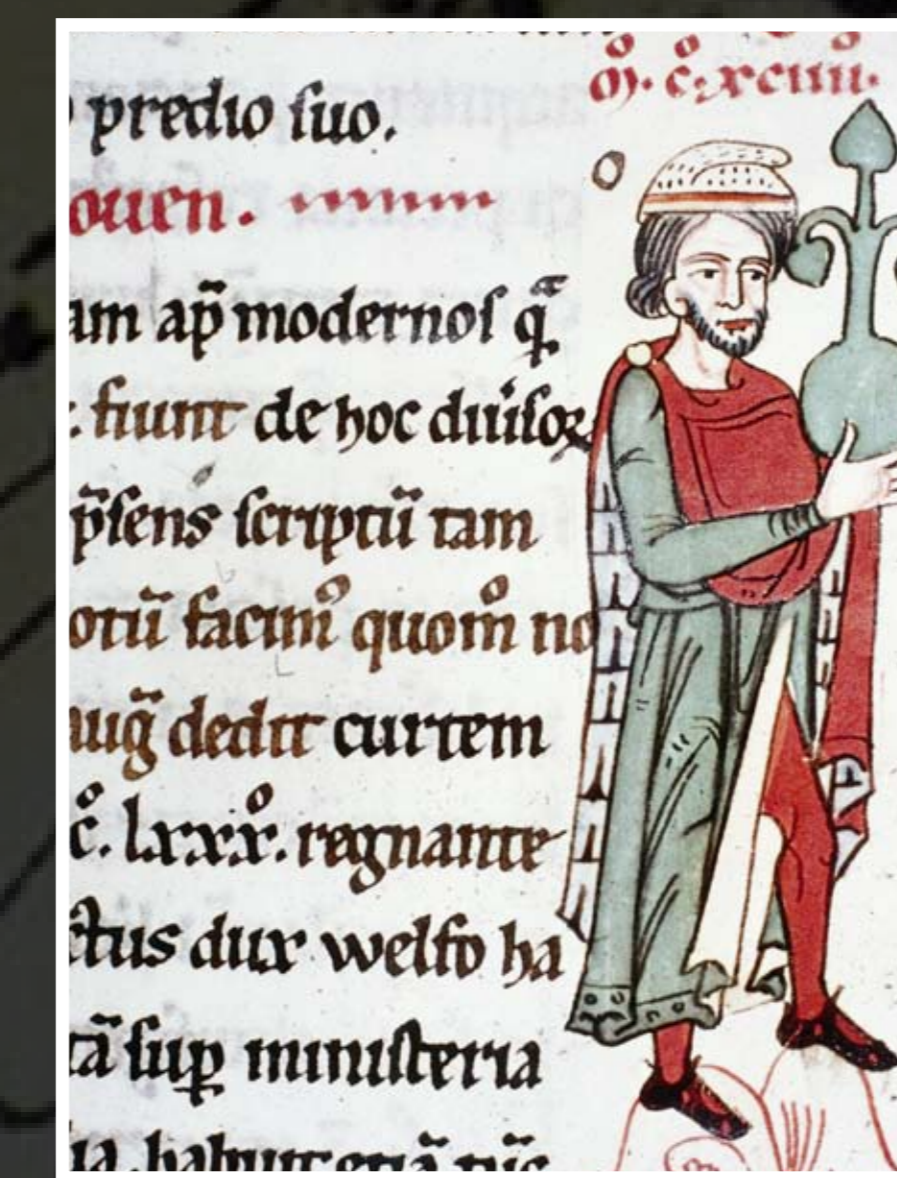 m̊. c̊. xcıııı.
predio suo.
ouen.
am ap̄ modernos q̄
fiunt de hoc diuisoꝝ
p̄sens scriptū tam
otū facim᷒ quom̄ no
aug̃ dedit curtem
c̊. lxxx̊. regnante
ctus dux welfo ha
tā suꝑ ministeria
ia. habuit etiā